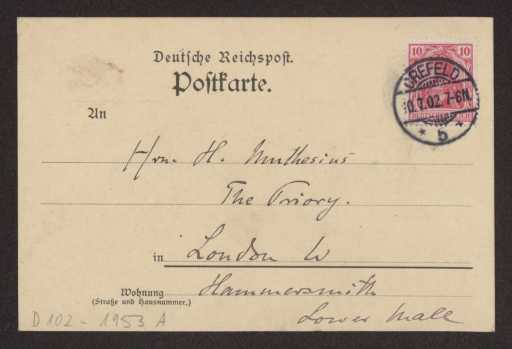 Deutsche Reichspost.
Postkarte.
10 10
CREFELD
0.7.02.7-8N.
* b *
An
Hrn. H. Muthesius
The Priory.
in London W
Wohnung
(Straße und Hausnummer.)
Hammersmith
Lower Mall
D 102 - 1953 A